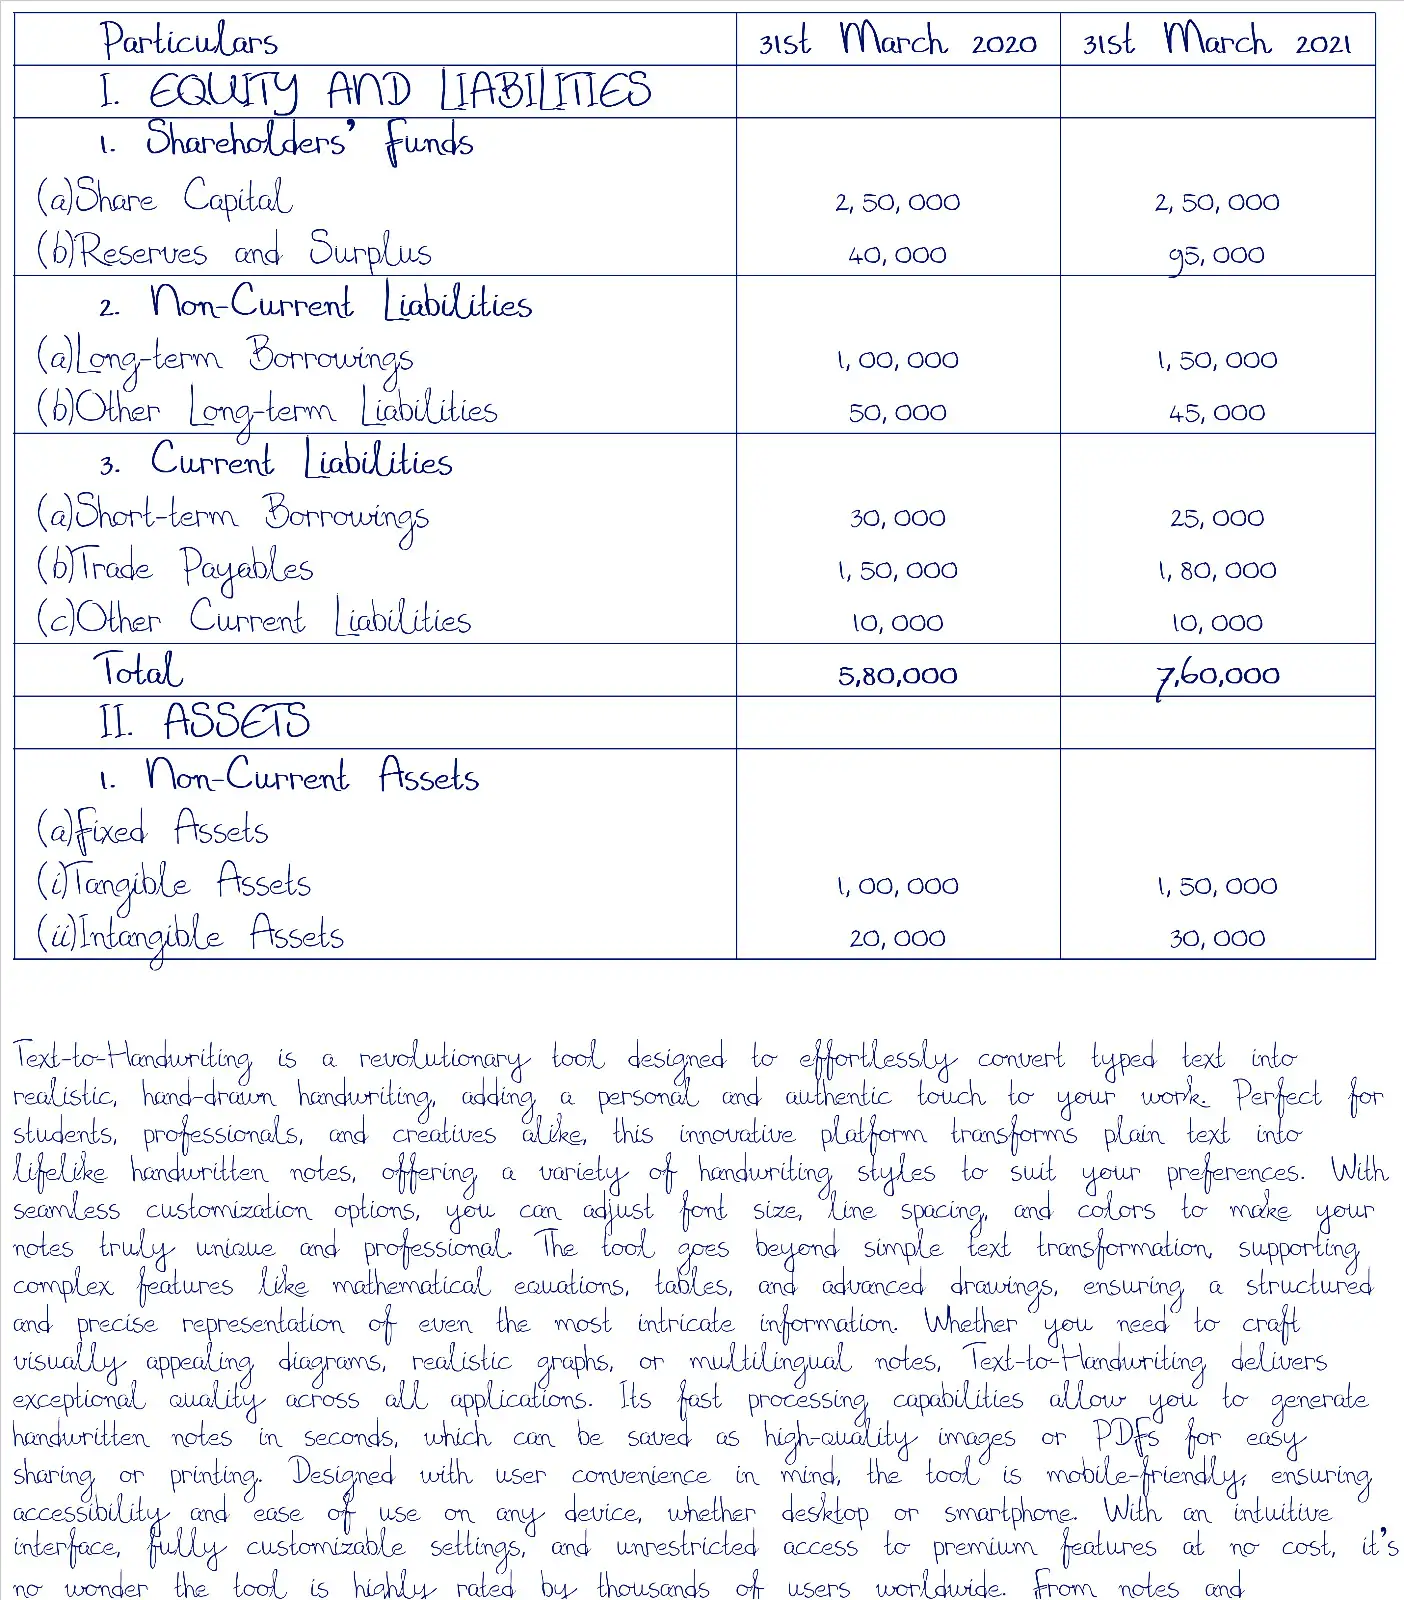 Particulars 31st March 2020 31st March 2021
I. EQUITY AND LIABILITIES
1. Shareholders' Funds
(a)Share Capital 2,50,000 2,50,000
(b)Reserves and Surplus 40,000 95,000
2. Non-Current Liabilities
(a)Long-term Borrowings 1,00,000 1,50,000
(b)Other Long-term Liabilities 50,000 45,000
3. Current Liabilities
(a)Short-term Borrowings 30,000 25,000
(b)Trade Payables 1,50,000 1,80,000
(c)Other Current Liabilities 10,000 10,000
Total 5,80,000 7,60,000
II. ASSETS
1. Non-Current Assets
(a)Fixed Assets
(i)Tangible Assets 1,00,000 1,50,000
(ii)Intangible Assets 20,000 30,000
Text-to-Handwriting is a revolutionary tool designed to effortlessly convert typed text into
realistic, hand-drawn handwriting, adding a personal and authentic touch to your work. Perfect for
students, professionals, and creatives alike, this innovative platform transforms plain text into
lifelike handwritten notes, offering a variety of handwriting styles to suit your preferences. With
seamless customization options, you can adjust font size, line spacing, and colors to make your
notes truly unique and professional. The tool goes beyond simple text transformation, supporting
complex features like mathematical equations, tables, and advanced drawings, ensuring a structured
and precise representation of even the most intricate information. Whether you need to craft
visually appealing diagrams, realistic graphs, or multilingual notes, Text-to-Handwriting delivers
exceptional quality across all applications. Its fast processing capabilities allow you to generate
handwritten notes in seconds, which can be saved as high-quality images or PDFs for easy
sharing or printing. Designed with user convenience in mind, the tool is mobile-friendly, ensuring
accessibility and ease of use on any device, whether desktop or smartphone. With an intuitive
interface, fully customizable settings, and unrestricted access to premium features at no cost, it's
no wonder the tool is highly rated by thousands of users worldwide. From notes and